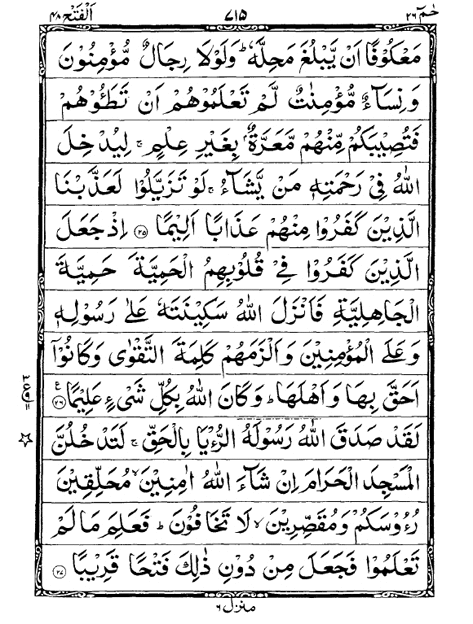 حٰمٓ ٢٦
٧١٥
اَلْفَتْح ٤٨
مَعْكُوْفًا اَنْ يَّبْلُغَ مَحِلَّهٗ ؕ وَلَوْلَا رِجَالٌ مُّؤْمِنُوْنَ
وَنِسَآءٌ مُّؤْمِنٰتٌ لَّمْ تَعْلَمُوْهُمْ اَنْ تَطَـُٔوْهُمْ
فَتُصِيْبَكُمْ مِّنْهُمْ مَّعَرَّةٌۢ بِغَيْرِ عِلْمٍ ۚ لِيُدْخِلَ
اللّٰهُ فِىْ رَحْمَتِهٖ مَنْ يَّشَآءُ ۚ لَوْ تَزَيَّلُوْا لَعَذَّبْنَا
الَّذِيْنَ كَفَرُوْا مِنْهُمْ عَذَابًا اَلِيْمًا ﴿٢٥﴾ اِذْ جَعَلَ
الَّذِيْنَ كَفَرُوْا فِىْ قُلُوْبِهِمُ الْحَمِيَّةَ حَمِيَّةَ
الْجَاهِلِيَّةِ فَاَنْزَلَ اللّٰهُ سَكِيْنَتَهٗ عَلٰى رَسُوْلِهٖ
وَعَلَى الْمُؤْمِنِيْنَ وَاَلْزَمَهُمْ كَلِمَةَ التَّقْوٰى وَكَانُوْٓا
اَحَقَّ بِهَا وَاَهْلَهَا ؕ وَكَانَ اللّٰهُ بِكُلِّ شَىْءٍ عَلِيْمًا ﴿٢٦﴾ ع
لَقَدْ صَدَقَ اللّٰهُ رَسُوْلَهُ الرُّءْيَا بِالْحَقِّ ۚ لَتَدْخُلُنَّ
الْمَسْجِدَ الْحَرَامَ اِنْ شَآءَ اللّٰهُ اٰمِنِيْنَ ۙ مُحَلِّقِيْنَ
رُءُوْسَكُمْ وَمُقَصِّرِيْنَ ۙ لَا تَخَافُوْنَ ؕ فَعَلِمَ مَا لَمْ
تَعْلَمُوْا فَجَعَلَ مِنْ دُوْنِ ذٰلِكَ فَتْحًا قَرِيْبًا ﴿٢٧﴾
منزل ٦